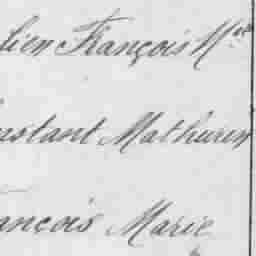 lien François M
nstant Mathurin
ançois Marie